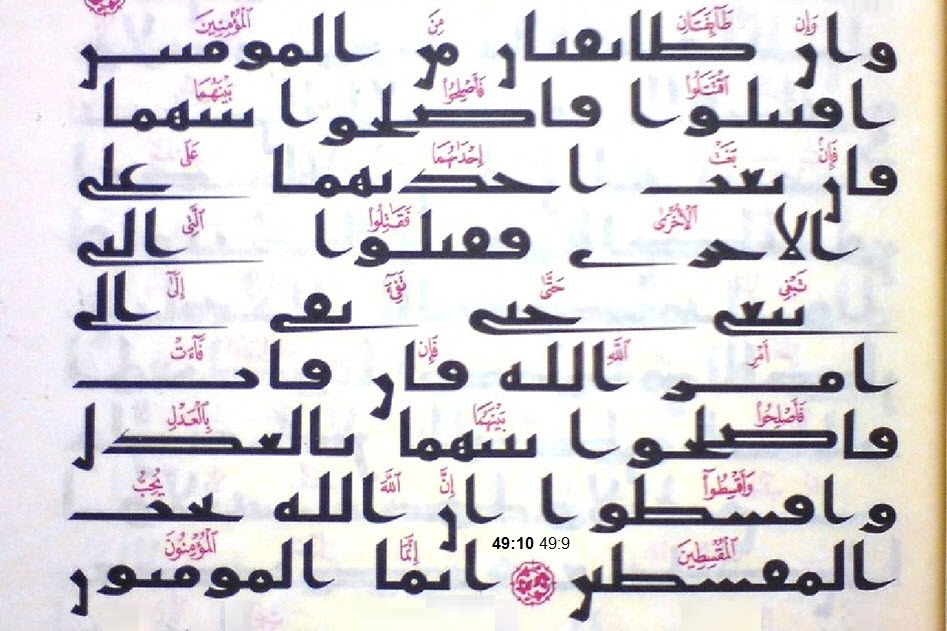 وَإِن طَآئِفَتَانِ مِنَ ٱلْمُؤْمِنِينَ
وان طايفتان من المومنين
ٱقْتَتَلُوا۟ فَأَصْلِحُوا۟ بَيْنَهُمَا
اقتتلوا فاصلحوا بينهما
فَإِنۢ بَغَتْ إِحْدَىٰهُمَا عَلَى
فان بغت احديهما على
ٱلْأُخْرَىٰ فَقَٰتِلُوا۟ ٱلَّتِى
الاخرى فقتلوا التى
تَبْغِى حَتَّىٰ تَفِىٓءَ إِلَىٰٓ
تبغى حتى تفى الى
أَمْرِ ٱللَّهِ فَإِن فَآءَتْ
امر الله فان فات
فَأَصْلِحُوا۟ بَيْنَهُمَا بِٱلْعَدْلِ
فاصلحوا بينهما بالعدل
وَأَقْسِطُوٓا۟ إِنَّ ٱللَّهَ يُحِبُّ
واقسطوا ان الله يحب
ٱلْمُقْسِطِينَ 49:9 49:10 إِنَّمَا ٱلْمُؤْمِنُونَ
المقسطين انما المومنون